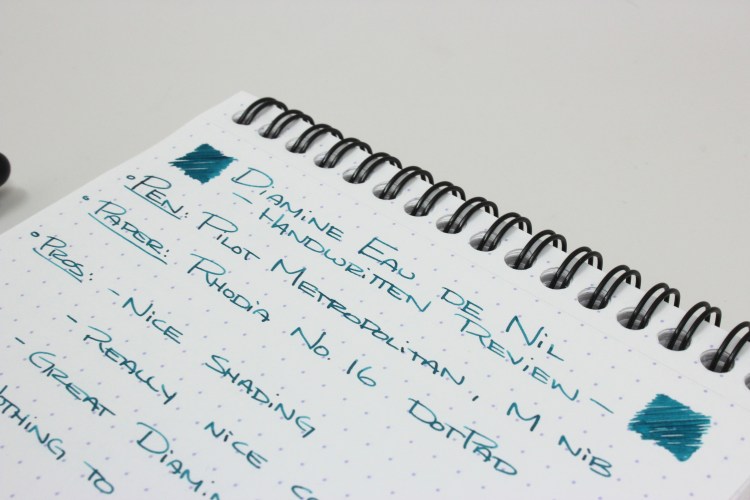 Diamine Eau de Nil
- Handwritten Review -
• Pen: Pilot Metropolitan, M nib
• Paper: Rhodia No. 16 DotPad
• Pros: - Nice shading
- Really nice
- Great
to